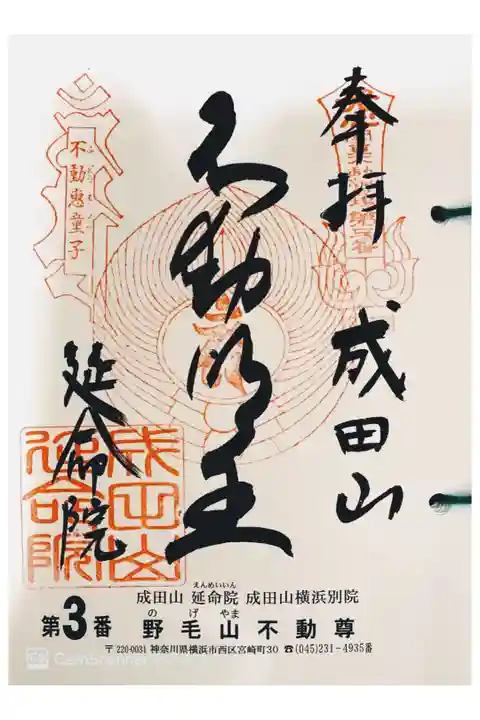 奉拝
成田山
不動明王
延命院
不動惠童子
成田山
延命院
えんめいいん
成田山 延命院 成田山横浜別院
の げ やま
第3番 野毛山不動尊
〒220-0031 神奈川県横浜市西区宮崎町30 ☎(045)231-4935番
CamScanner